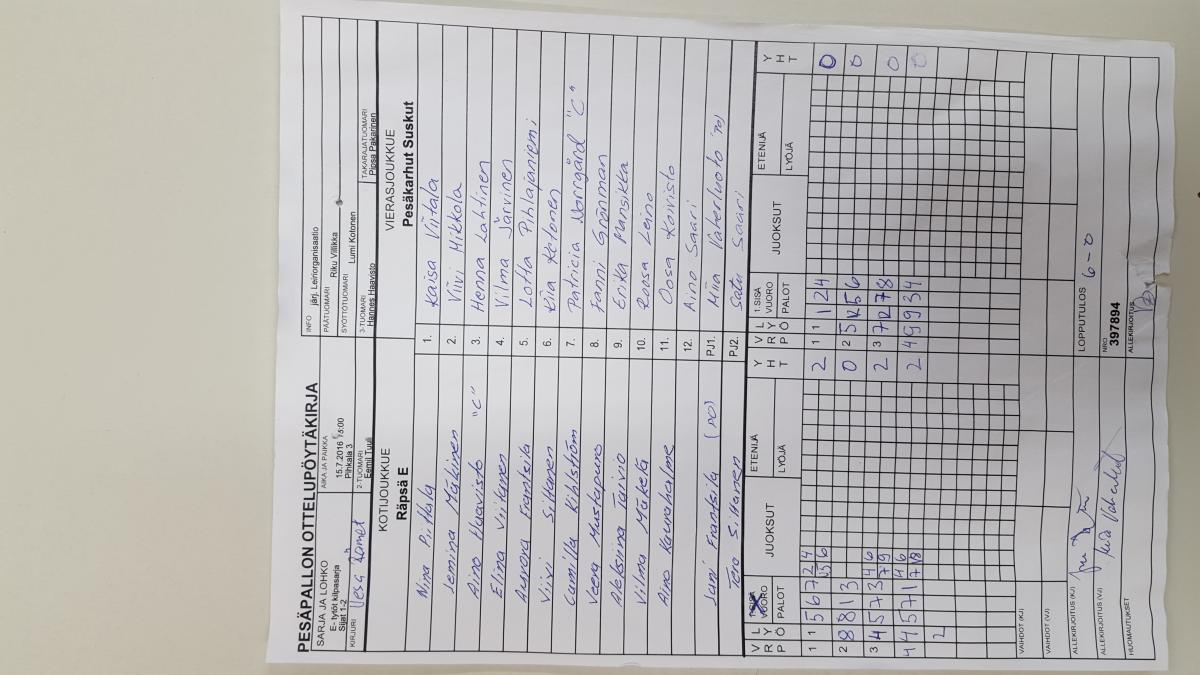 PESÄPALLON OTTELUPÖYTÄKIRJA
SARJA JA LOHKO
E- tytöt kilpasarja
Sijat 1-2
AIKA JA PAIKKA
15.7.2016 15:00
Pihkala 3
INFO järj. Leiriorganisaatio
PÄÄTUOMARI Riku Villikka
SYÖTTÖTUOMARI Lumi Kotonen
KIRJURI Vesa
2-TUOMARI
Eemil Tuuli
3-TUOMARI
Hannes Haavisto
TAKARAJATUOMARI
Pipsa Pakarinen
KOTIJOUKKUE
Räpsä E
VIERASJOUKKUE
Pesäkarhut Suskut
Nina Piitulla 1. Kaisa Viitala
Jemina Mäkinen 2. Viivi Mikkola
Aino Haavisto "C" 3. Henna Lahtinen
Elina Viitanen 4. Vilma Järvinen
Aurora Frantsila 5. Lotta Pihlajaniemi
Viivi Siltanen 6. Kiia Ketonen
Camilla Kihlström 7. Patricia Norrgård "C"
Veera Mustapuro 8. Fanni Grönman
Aleksiina Tarvio 9. Erika Mansikka
Vilma Mäkelä 10. Roosa Leino
Aino Kaurahalme 11. Oosa Koivisto
12. Aino Saari
Jani Frantsila (PO) PJ1. Miia Vaherluoto PO
Tero Siltanen PJ2. Satu Saari
V R L Y P Ö
VUORO
PALOT
JUOKSUT
ETENIJÄ
LYÖJÄ
Y H T
V R L Y P Ö
1.SISÄ
VUORO
PALOT
JUOKSUT
ETENIJÄ
LYÖJÄ
Y H T
1 1 5 6 7 2 4 2 1 1 1 2 4 0
2 8 8 1 3 0 2 5 6 0
3 4 5 7 3 4 6 2 3 7 7 8 0
4 4 5 7 1 4 6 2 4 9 9 3 4 0
2
VAIHDOT (KJ)
VAIHDOT (VJ)
ALLEKIRJOITUS (KJ)
LOPPUTULOS 6-0
ALLEKIRJOITUS (VJ)
NRO
397894
HUOMAUTUKSET
ALLEKIRJOITUS